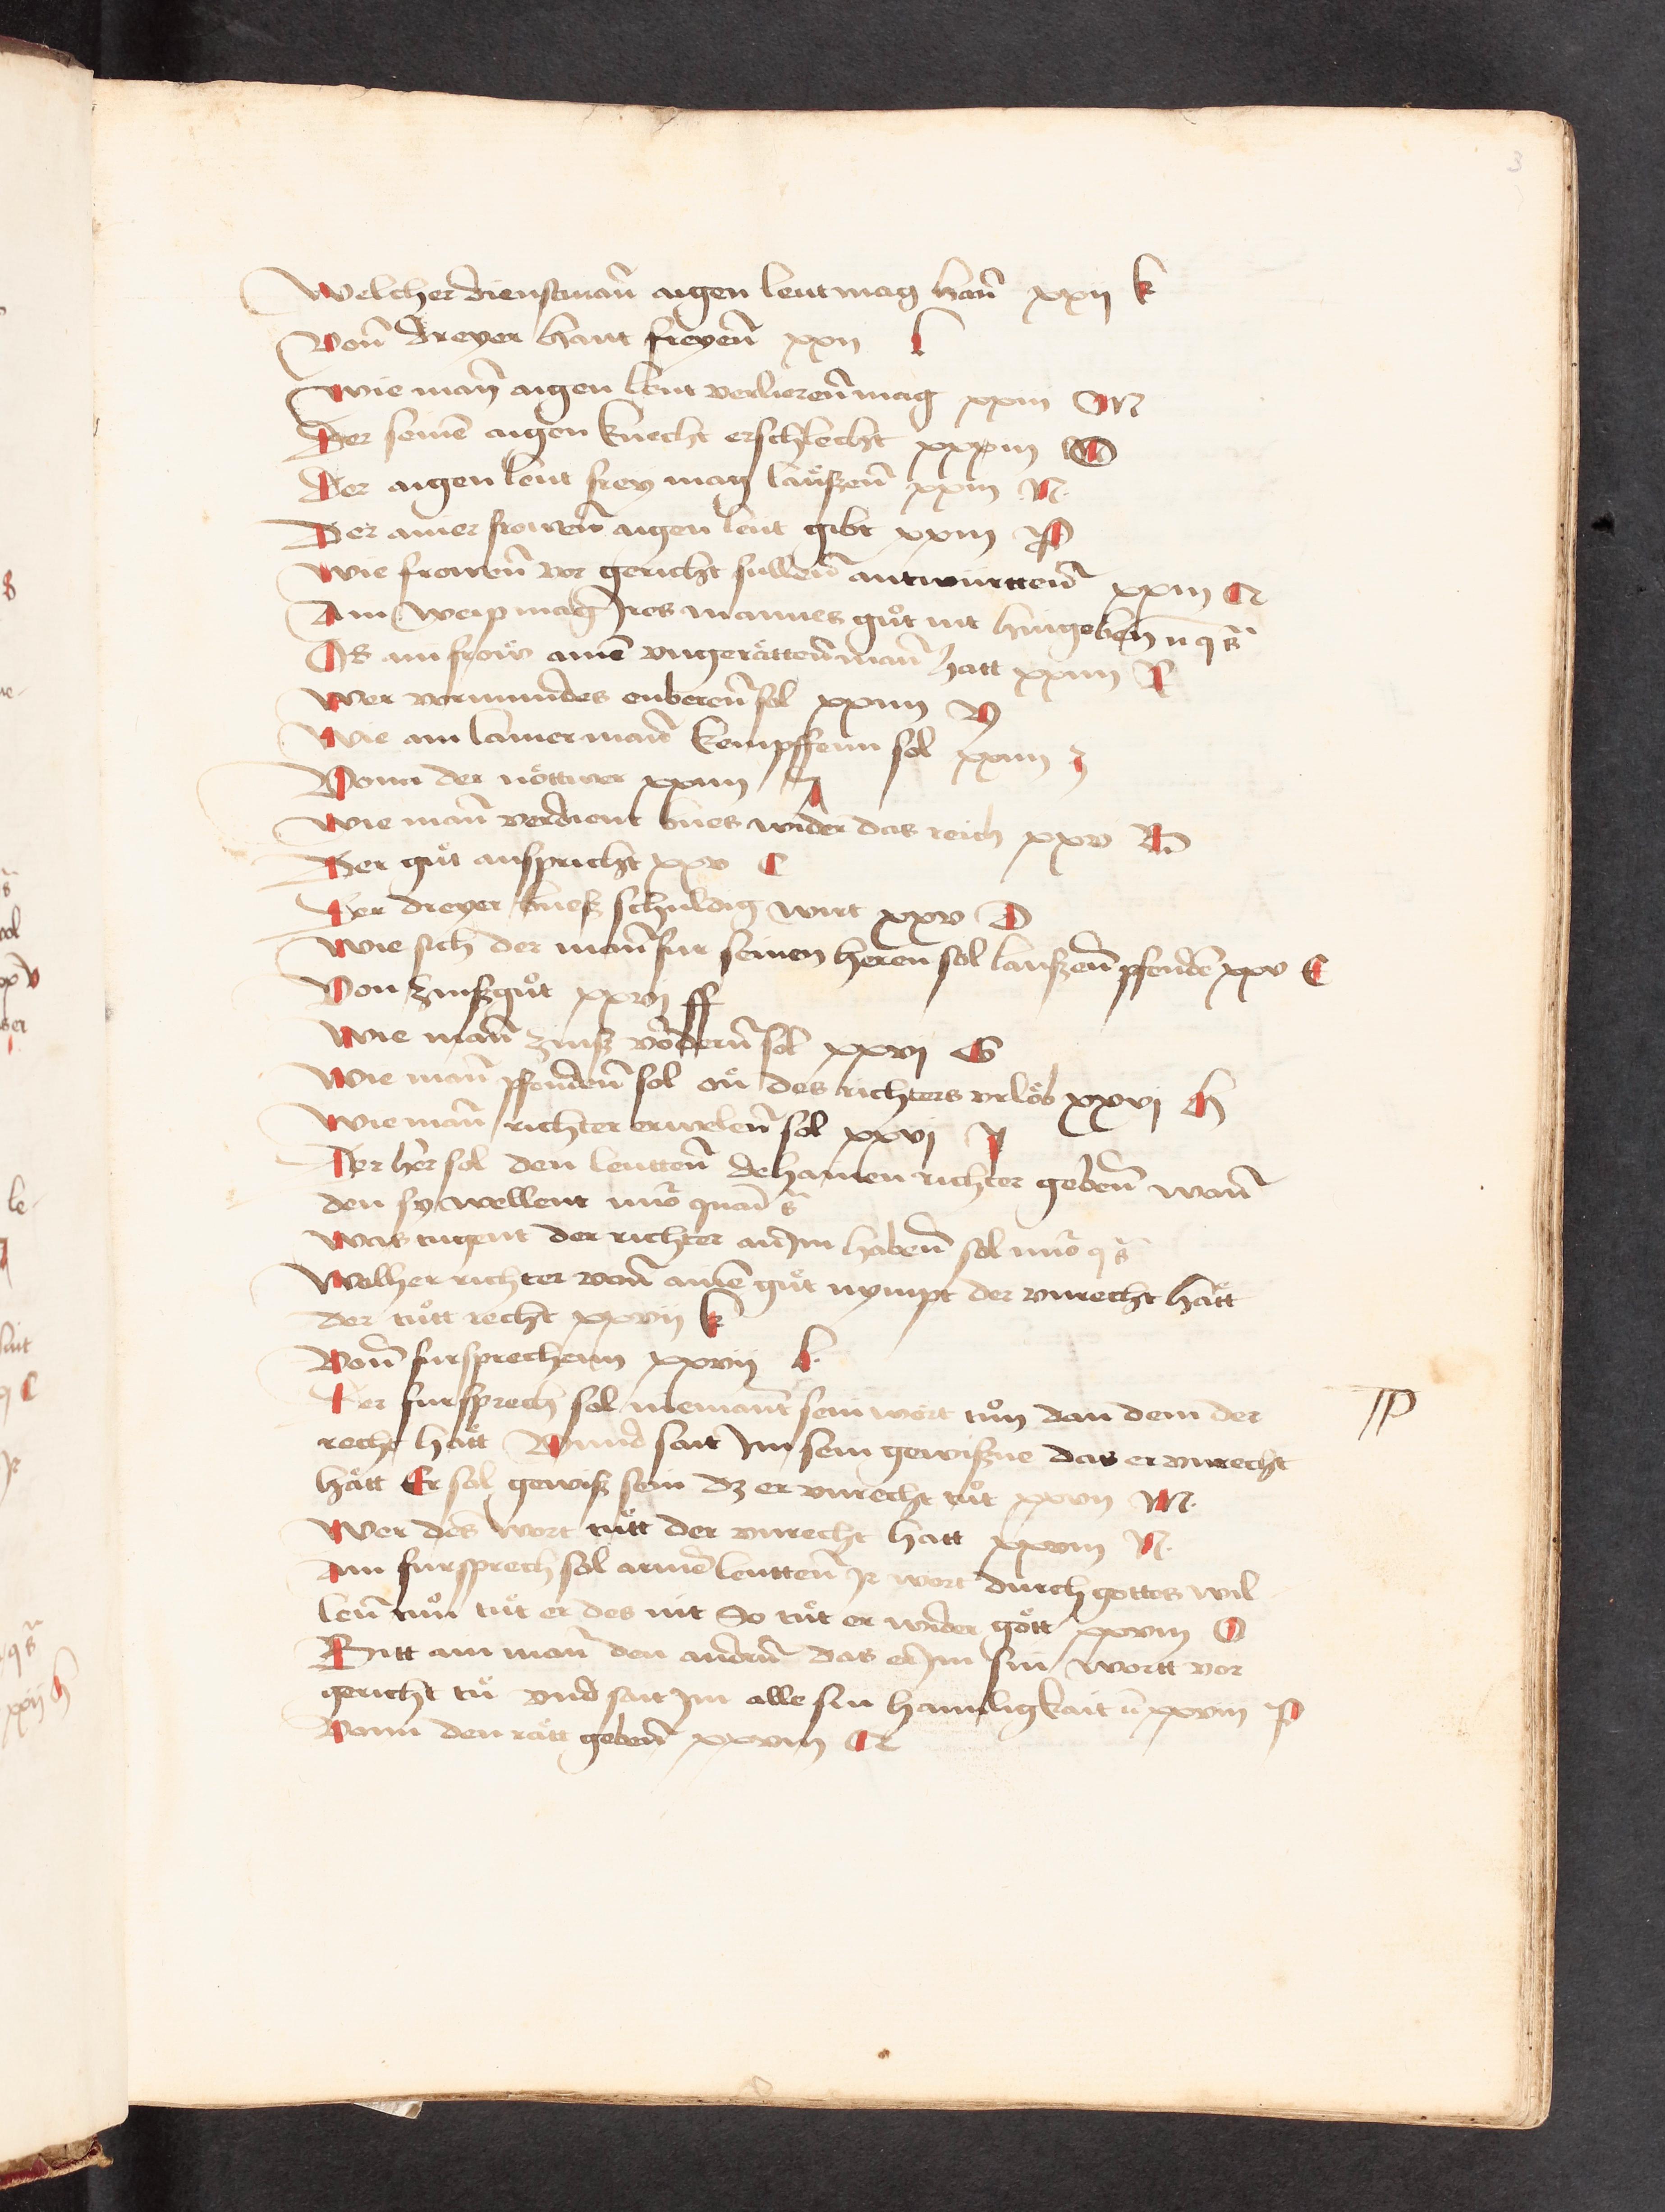 3
Welcher dienstman̄ aigen leut mag han̄ xxij k
Von̄ dreyer hant freyen̄ xxij l
Wie man̄ aigen leut verlieren̄ mag xxiij M
Der seinē aigen knecht erschlecht xxxiij O
Der aigen leut frey man laüszen̄ xxiij N.
Der ainer frowen̄ aigen leut gibt xxiij P
Wie frowen̄ vor gericht sullen̄ antwürtten̄ xxiij Q
Ain weip mag Jres mannes guͦt nit hingeben̄
Ob ain frow ainē vngerätten̄ man̄ hatt xxiiij R
Wer vormundes enberen̄ sol xxiiij V
Wie ain lamer man̄ kempffenn sol xxiiij z
Vonn der nöttwer xxiiij A
Wie man̄ verdient bues wider das reich xxv B
Der guͦt anspricht xxv C
Der dreyer buesz schuldig wirt xxv D
Wie sich der man̄ fur seinen heren sol lauszen̄ pfenden̄ xxv E
Von zinszguͦt xxvj ff
Wie man̄ zinsz vodern̄ sol xxvj G
Wie man̄ pfenden̄ sol on̄ des richters vrlob xxvj H
Wie man̄ richter erwelen̄ sol xxvj J
Der her sol den leutten̄ dehainen richter geben̄ wan̄
den sy wellent
Was tugent der richter an Jm haben̄ sol
Welher richter von̄ ainē guͦt nympt der vnrecht hatt
der tuͦtt recht xxvij k
Von̄ fursprechenn xxvij l.
Der fursprech sol niemant sein wort tuͦn dan dem der
recht hatt Vnnd sait Jm sein gewiszne das er vnrecht
hätt Er sol gewisz sein dz er vnrecht tuͦt xxvij M.
Wer des wort tuͦtt der vnrecht hatt xxviij N.
Ain fursprech sol armē leutten̄ Jr wort durch gottes wil
len̄ tuͦn tuͦt er des nit So tuͦt er wider gott xxviij O
Bitt ain man̄ den andern̄ das er Jm sin wortt vor
gericht tuͦ vnd sait Jm alle sin hamligkait xxviij P
Vonn den rätt geben̄ xxviij Q